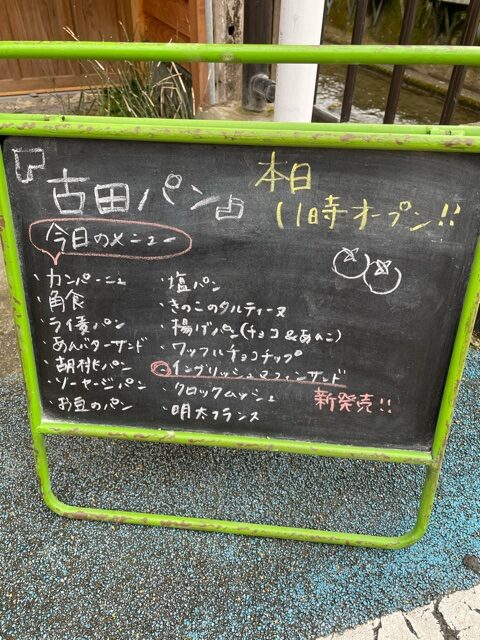 『古田パン』
本日
11時オープン!!
今日のメニュー
・カンパーニュ
・角食
・ライ麦パン
・あんバターサンド
・胡桃パン
・ソーセージパン
・お豆のパン
・塩パン
・きのこのタルティーヌ
・揚げパン(チョコ&あんこ)
・ワッフルチョコチップ
・イングリッシュマフィンサンド
・クロックムッシュ
・明太フランス
新発売!!